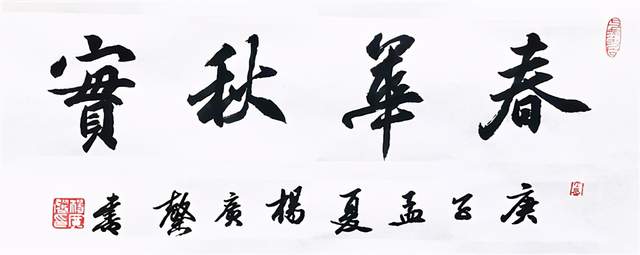 春華秋實
庚子孟夏楊廣馨書